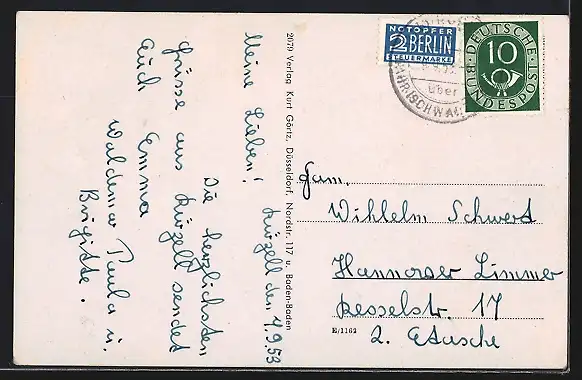 Meine Lieben!
Kürzell den 4.9.53
Die herzlichsten
Grüsse aus Kürzell sendet
Euch Emma
Waldemar Paula u.
Brigitte.
2079 Verlag Kurt Görtz, Düsseldorf, Nordstr. 117 u. Baden-Baden
NOTOPFER
2 BERLIN
STEUERMARKE
DEUTSCHE BUNDESPOST
10
über
Fam.
Wihlelm Schwerd
Hannover Limmer
Kesselstr. 17
2. Etasche
E/1162